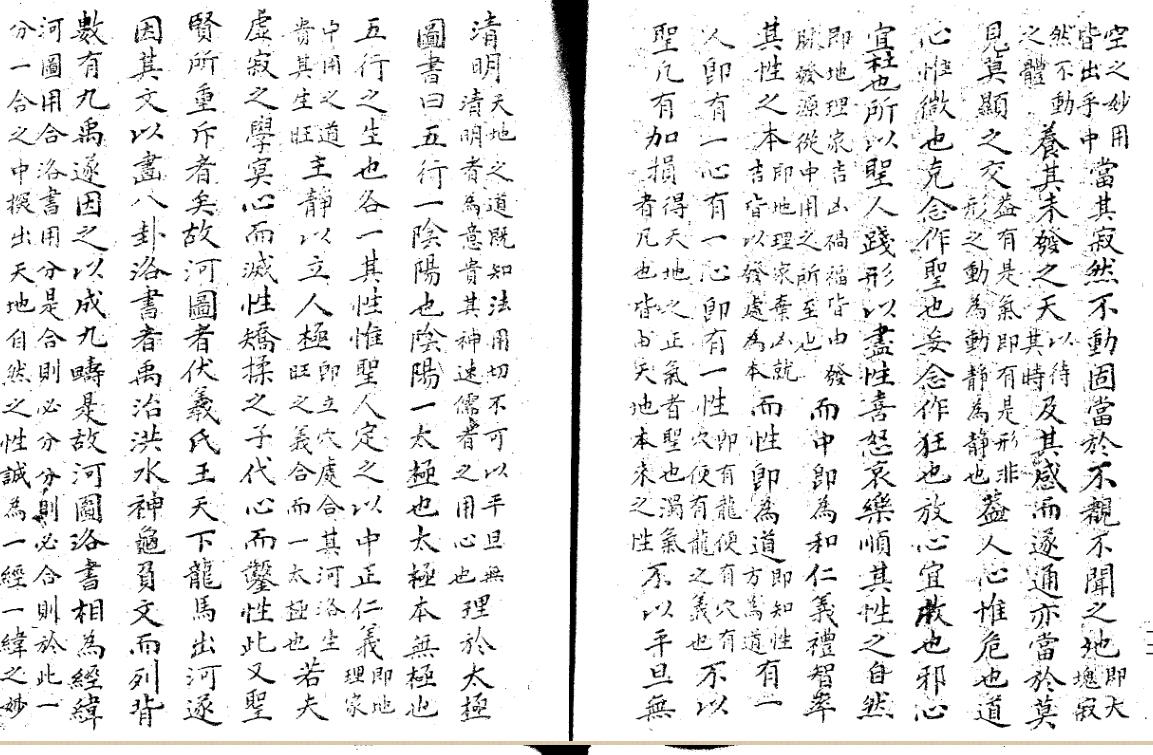 空之妙用
皆出乎中當其寂然不動固當於不覩不聞之地即大塊寂
然不動
之體養其未發之天以待其時及其感而遂通亦當於莫
見莫顯之交益有是氣即有是形非形之動為動靜為静也蓋人心惟危也道
心惟微也克念作聖也妄念作狂也放心宜救也邪心
宜杜也所以聖人踐形以盡性喜怒哀樂順其性之自然
即地理家吉凶禍福皆由發脉發源從中用之所至也而中即為和仁義禮智率
其性之本即地理家棄凶就吉皆以發處為本而性即為道即知性方為道有一
人即有一心有一心即有一性即有龍便有穴有穴便有龍之義也不以
聖凡有加損得天地之正氣者聖也濁氣者凡也皆由天地本来之性不以平旦無
清明天地之道既知法用切不可以平旦無清明者為意貴其神速儒者之用心也理於太極
圖書曰五行一陰陽也陰陽一太極也太極本無極也
五行之生也各一其性惟聖人定之以中正仁義即地理家
中用之道貴其生旺主靜以立人極即立穴處合其河洛生旺之義合而一太極也若夫
虛寂之學冥心而滅性矯揉之子代心而鑿性此又聖
賢所重斥者矣故河圖者伏羲氏王天下龍馬出河遂
因其文以畫八卦洛書者禹治洪水神龜負文而列背
數有九禹遂因之以成九疇是故河圖洛書相為經緯
河圖用合洛書用分是合則必分分則必合則於此一
分一合之中撰出天地自然之性誠為一經一緯之妙